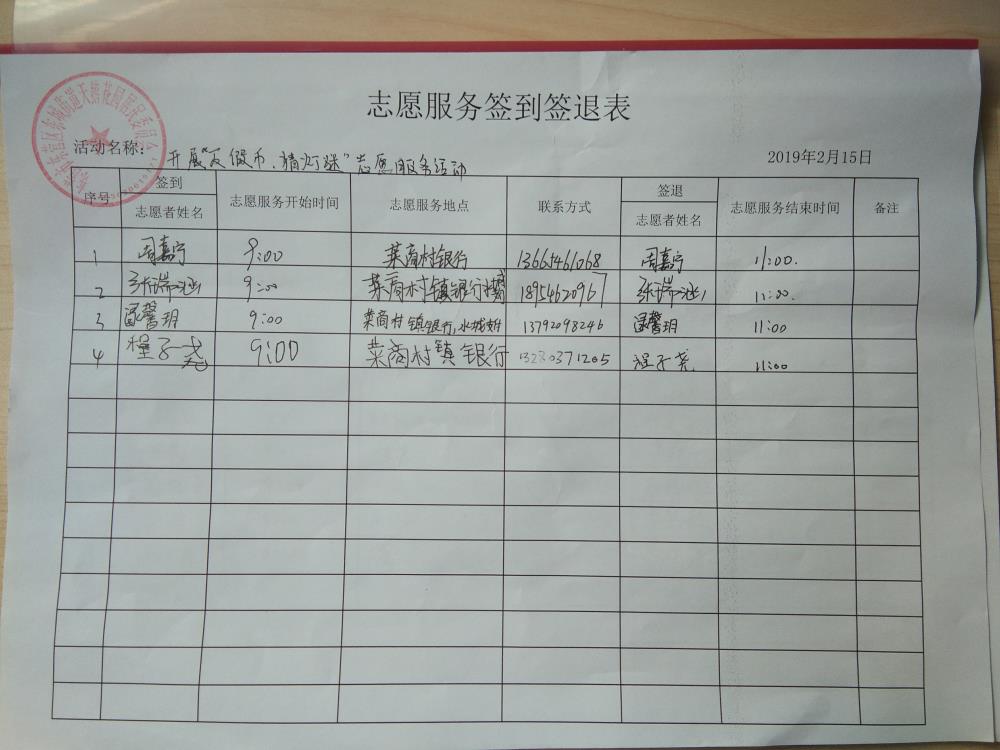 志愿服务签到签退表
活动名称: 开展"反假币、猜灯谜"志愿服务活动
2019年2月15日
序号 签到 志愿者姓名 志愿服务开始时间 志愿服务地点 联系方式 签退 志愿者姓名 志愿服务结束时间 备注
1 周嘉宁 9:00 莱商村镇银行 13661461068 周嘉宁 11:00.
2 9:00 莱商村镇银行 18954620967 11:00.
3 馨玥 9:00 莱商村镇银行, 13792098246 馨玥 11:00
4 程子尧 9:00 莱商村镇银行 13280371205 程子尧 11:00